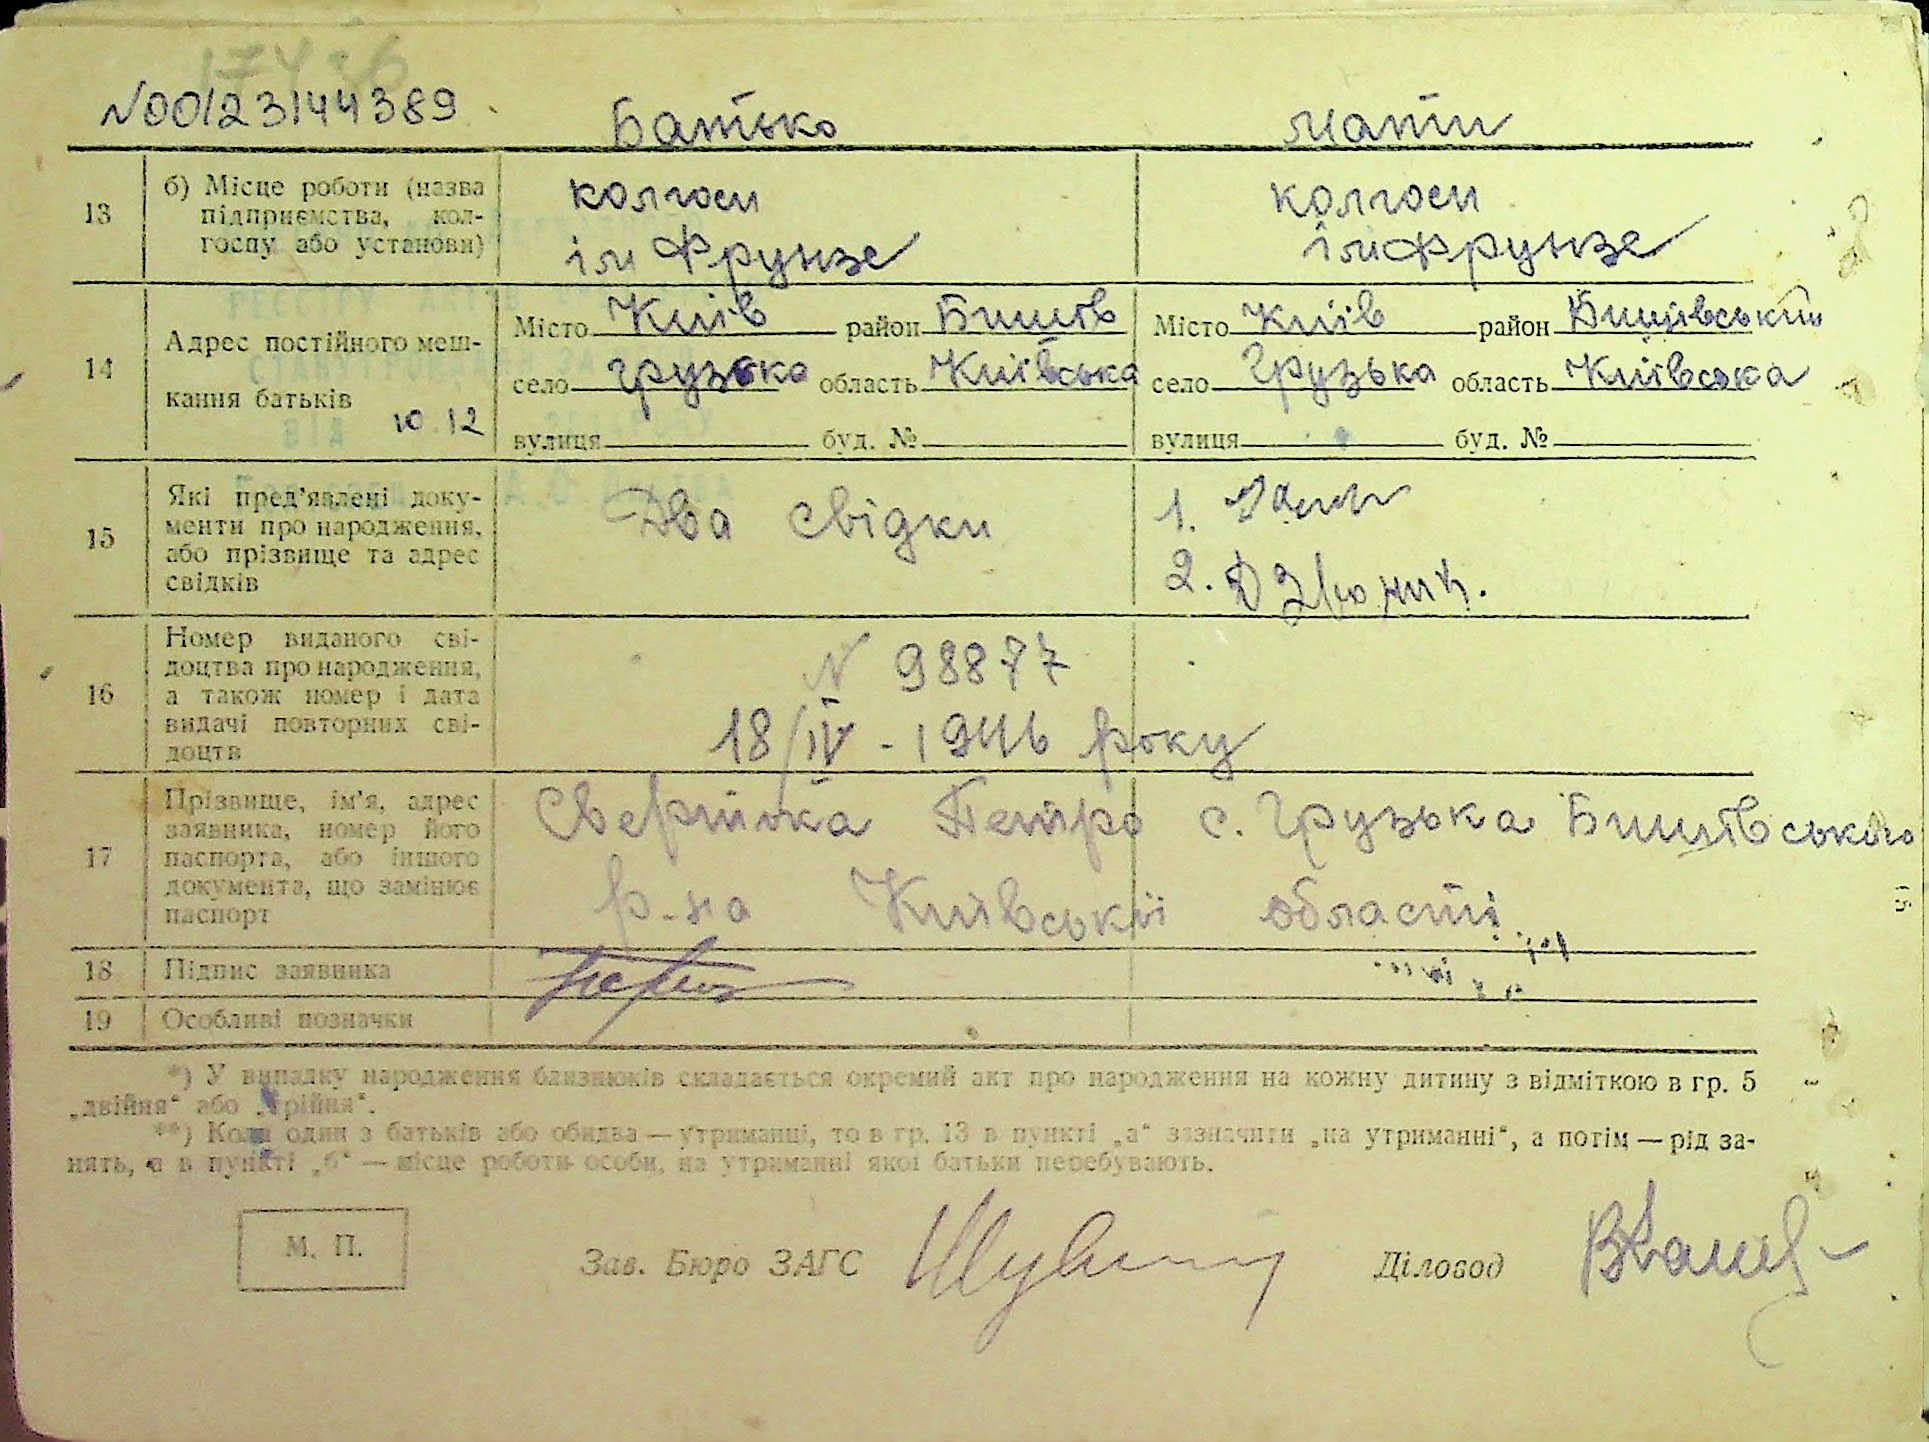 N00123144389
Батько мати
13 б) Місце роботи (назва
підприємства, кол-
госпу або установи)
колгосп
ім Фрунзе
колгосп
ім Фрунзе
14 Адрес постійного меш-
кання батьків
10.12
Місто Київ район Бишів
село Грузька область Київська
вулиця буд. №
Місто Київ район Бишівський
село Грузька область Київська
вулиця буд. №
15 Які пред'явлені доку-
менти про народження,
або прізвище та адрес
свідків
Два свідки
1.
2.
16 Номер виданого сві-
доцтва про народження,
а також номер і дата
видачі повторних сві-
доцтв
N 98877
18/IV - 1946 року
17 Прізвище, ім'я, адрес
заявника, номер його
паспорта, або іншого
документа, що замінює
паспорт
Петро с. Грузька Бишівського
р-на Київській області
18 Підпис заявника
19 Особливі позначки
*) У випадку народження близнюків складається окремий акт про народження на кожну дитину з відміткою в гр. 5
„двійня“ або „трійня“.
**) Коли один з батьків або обидва — утриманці, то в гр. 13 в пункті „а“ зазначити „на утриманні“, а потім — рід за-
нять, а в пункті „б“ — місце роботи особи, на утриманні якої батьки перебувають.
М. П.
Зав. Бюро ЗАГС
Діловод